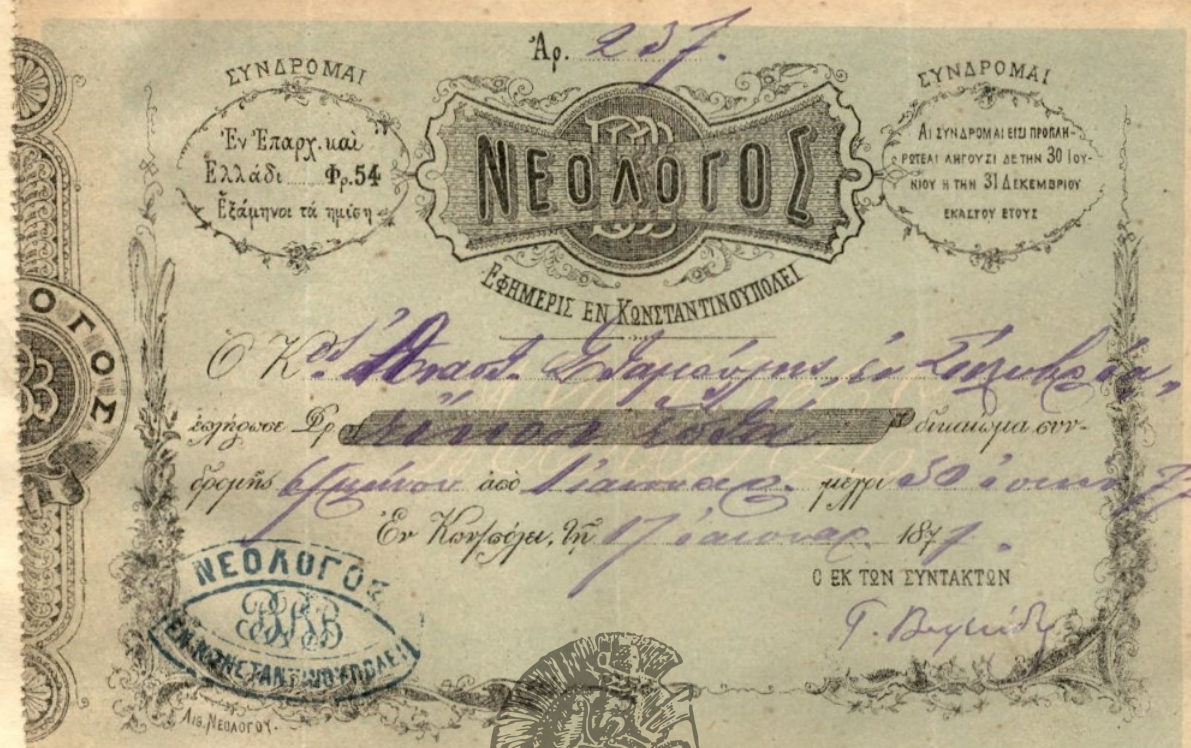 Ἀρ. 237.
ΣΥΝΔΡΟΜΑΙ
Ἐν Ἐπαρχ. καὶ
Ἑλλάδι Φρ. 54
Ἑξάμηνοι τὰ ημίση
ΝΕΟΛΟΓΟΣ
ΕΦΗΜΕΡΙΣ ΕΝ ΚΩΝΣΤΑΝΤΙΝΟΥΠΟΛΕΙ
ΣΥΝΔΡΟΜΑΙ
ΑΙ ΣΥΝΔΡΟΜΑΙ ΕΙΣΙ ΠΡΟΠΛΗ-
ΡΩΤΕΑΙ ΛΗΓΟΥΣΙ ΔΕ ΤΗΝ 30 ΙΟΥ-
ΝΙΟΥ Η ΤΗΝ 31 ΔΕΚΕΜΒΡΙΟΥ
ΕΚΑΣΤΟΥ ΕΤΟΥΣ
Ὁ Κος Ἀναστ. Σταμούλης, ἐν Σηλυβρία,
ἐπλήρωσε Φρ εἴκοσι ἑπτὰ δικαίωμα συν-
δρομῆς ἀπὸ μέχρι 30
Ἐν Κων/πόλει, τῇ 17 ἰανουαρ. 1877.
Ο ΕΚ ΤΩΝ ΣΥΝΤΑΚΤΩΝ
ΝΕΟΛΟΓΟΣ
ΒΚΒ
ΕΝ ΚΩΝΣΤΑΝΤΙΝΟΥΠΟΛΕΙ
ΛΙΘ. ΝΕΟΛΟΓΟΥ.
ΟΓΟΣ